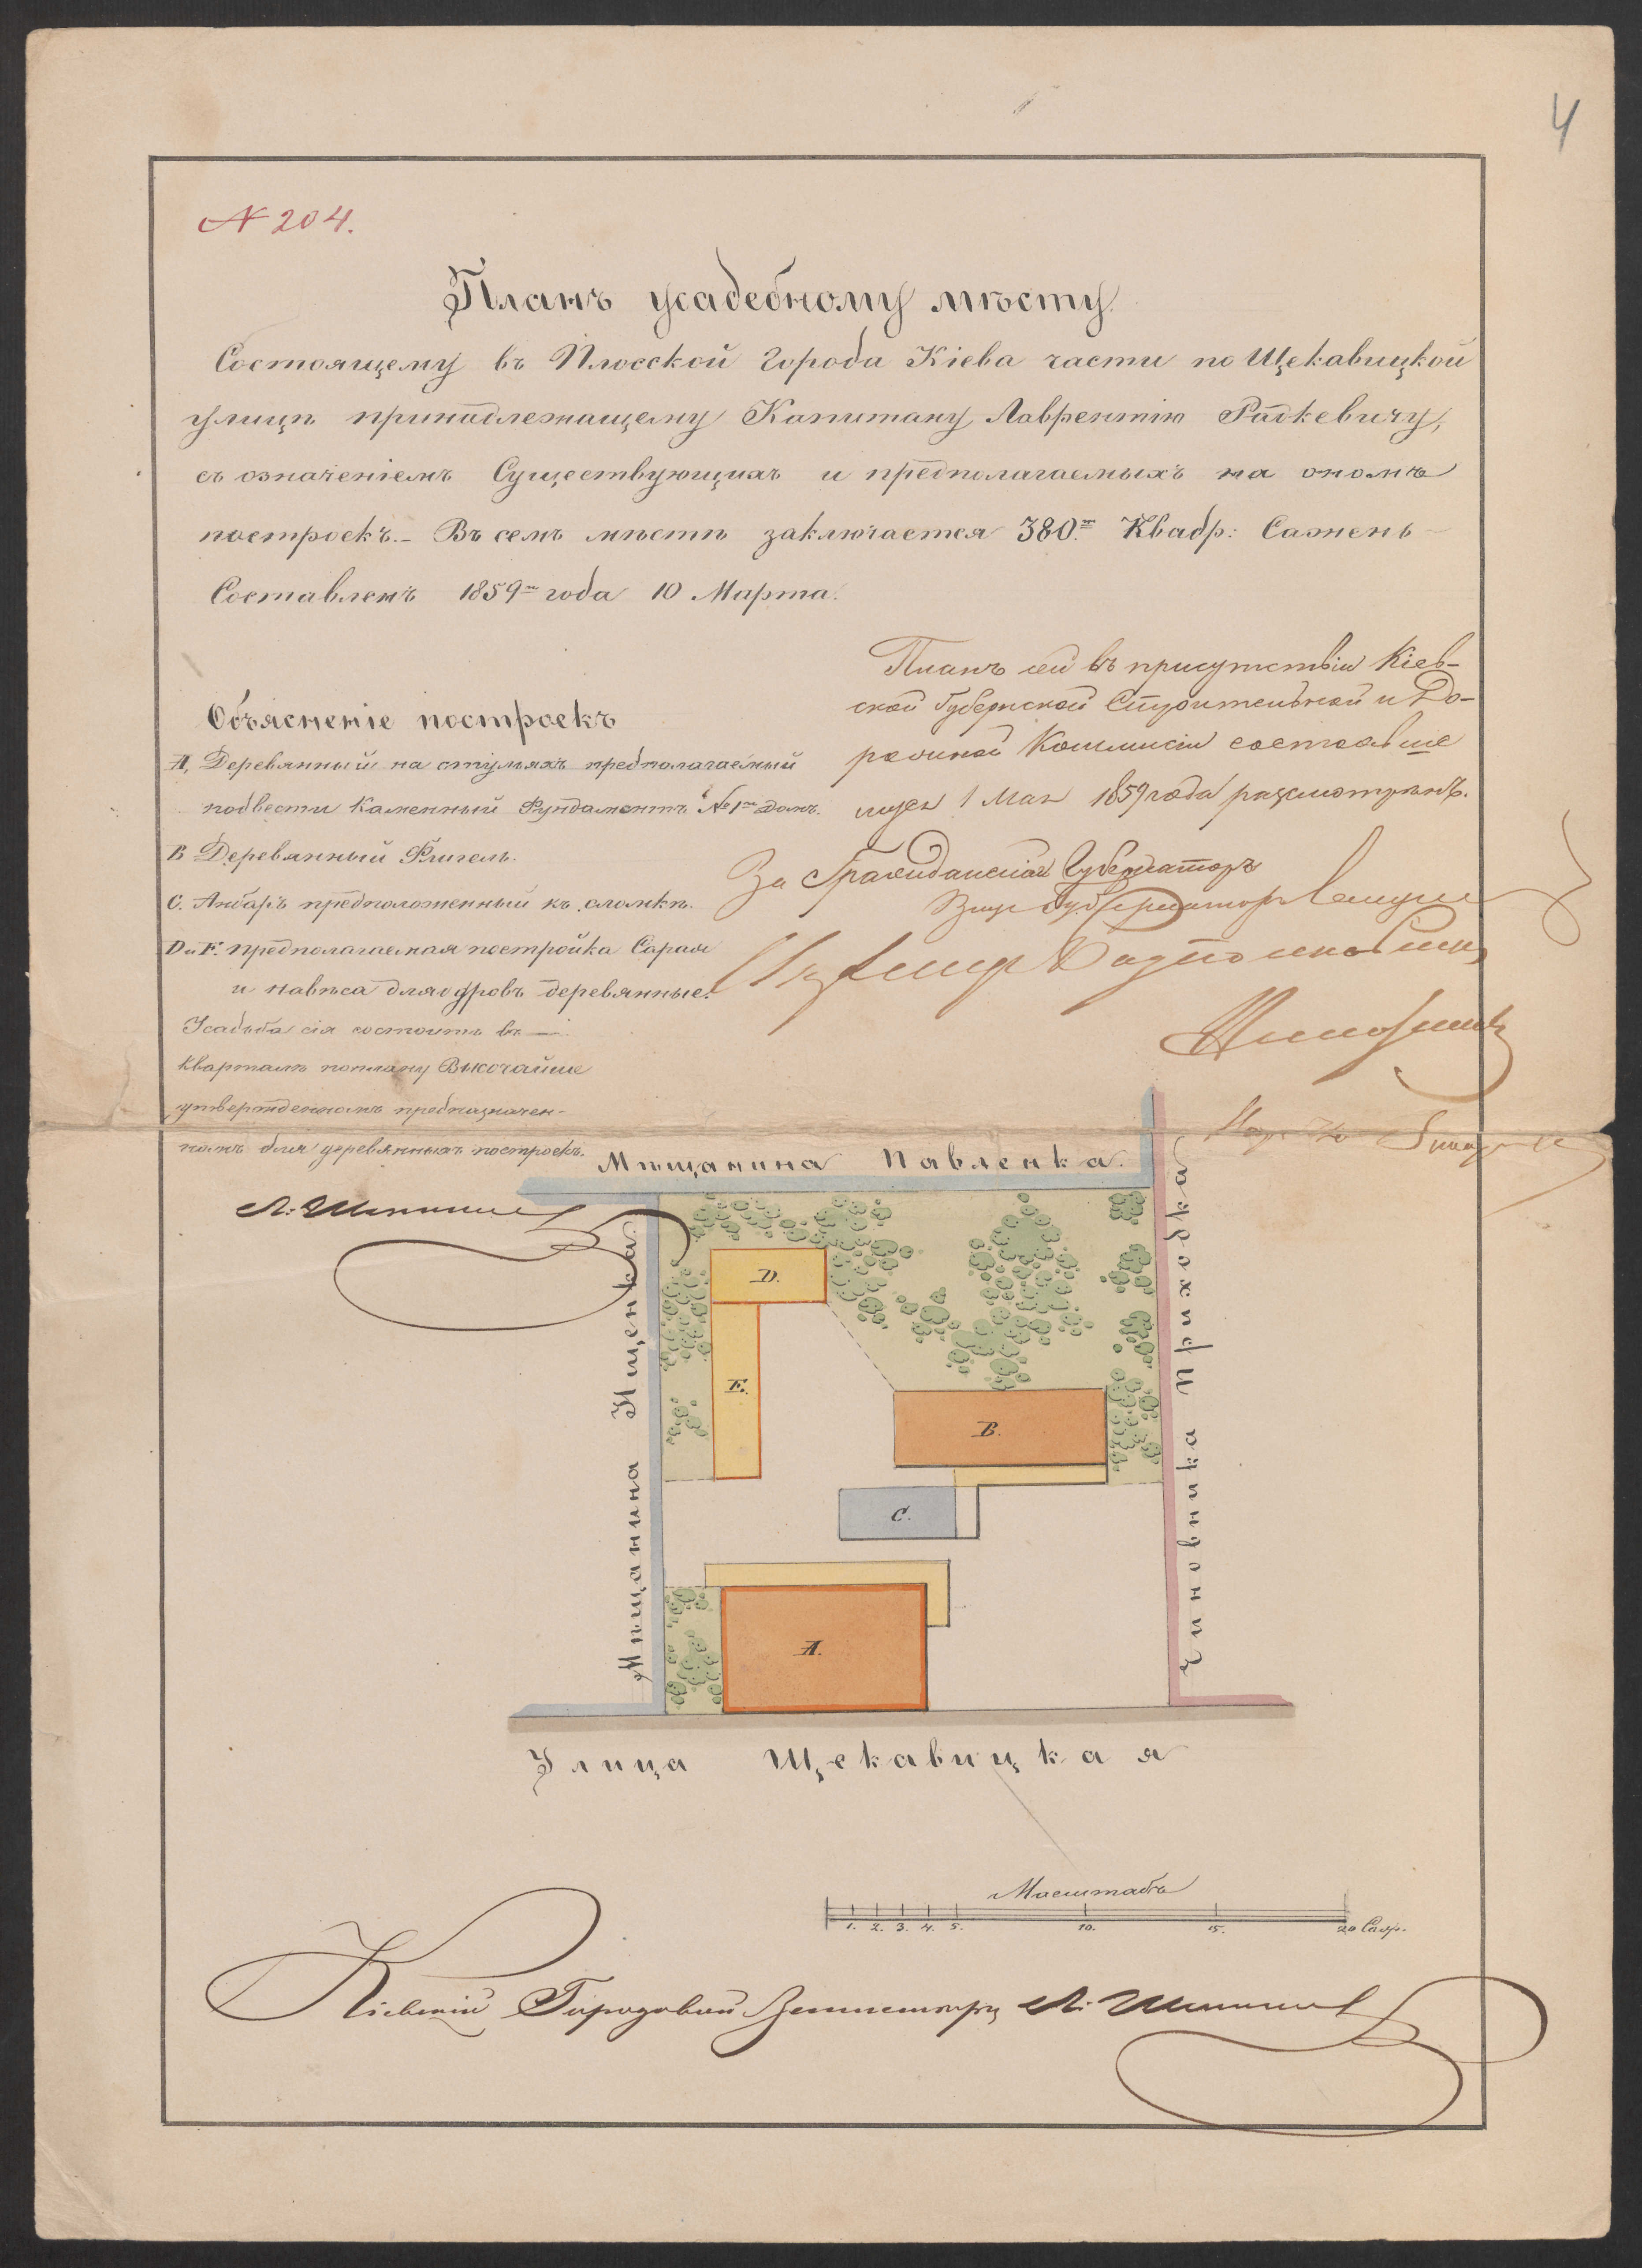 4
№ 204.
Планъ усадебному мѣсту
Состоящему въ Плосской города Кіева части по Щекавицкой
улицѣ принадлежащему Капитану Лаврентію Радкевичу,
съ означеніемъ Существующихъ и предполагаемыхъ на ономъ
построекъ.- Въ семъ мѣстѣ заключается 380.ᵗ Квадр: Сажень
Составленъ 1859ᵗ года 10 Марта.
Планъ сей въ присутствіи Кіев-
ской Губернской Строительной и До-
рожной Коммисіи состоявше
муся 1 Мая 1859 года разсмотрѣнъ.
За Гражданскаго Губернатора
Вице Губернаторъ
Объясненіе построекъ
А, Деревянный на стульяхъ предполагаемый
подвести Каменный Фундаментъ № 1ᵗ домъ.
В Деревянный Флигель.
С. Анбаръ предположенный къ сломкѣ.
D и F. предполагаемая постройка Сарая
и навѣса для дровъ деревянные.
Усадьба сія состоитъ въ —
кварталѣ по плану Высочайше
утвержденномъ предназначен-
номъ для деревянныхъ построекъ.
Мѣщанина Павленка.
Мѣщанина Ищенка.
Чиновника Приходка
D.
F.
B.
C.
A.
Улица Щекавицкая
Масштабъ
1. 2. 3. 4. 5. 10. 15. 20 Саж.
Кіевскій Городовой Землемѣръ Л.